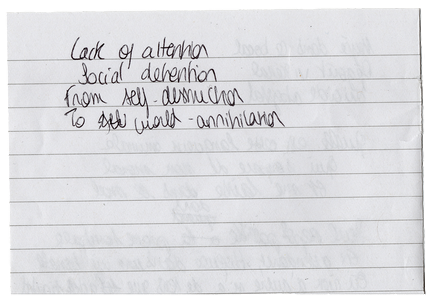 Lack of attention
Social detention
From self-destruction
To world-annihilation